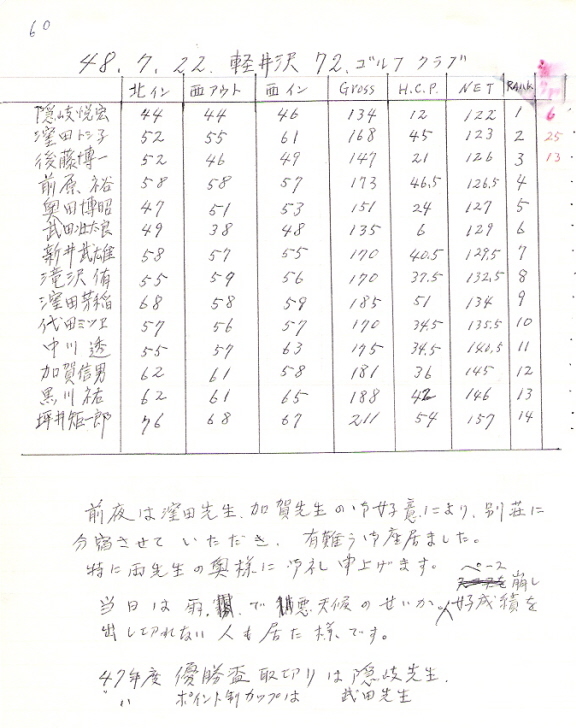 60
48.7.22. 軽井沢 72.ゴルフ クラブ
北イン 西アウト 西イン Gross H.C.P. NET RANK
隠岐悦宏 44 44 46 134 12 122 1 6
窪田トシ子 52 55 61 168 45 123 2 25
後藤博一 52 46 49 147 21 126 3 13
前原 裕 58 58 57 173 46.5 126.5 4
奥田博昭 47 51 53 151 24 127 5
武田壮太良 49 38 48 135 6 129 6
新井武雄 58 57 55 170 40.5 129.5 7
滝沢 侑 55 59 56 170 37.5 132.5 8
窪田芽稲 68 58 59 185 51 134 9
代田ミツエ 57 56 57 170 34.5 135.5 10
中川 透 55 57 63 175 34.5 140.5 11
加賀信男 62 61 58 181 36 145 12
黒川 祐 62 61 65 188 42 146 13
坪井矩一郎 76 68 67 211 54 157 14
前夜は窪田先生、加賀先生の御好意により、別荘に
分宿させて いただき、有難う御座居ました。
特に両先生の奥様に御礼申上げます。
ペース
を崩し
当日は雨、で 悪天候のせいか、好成績を
出し切れない人も居た様です。
47年度 優勝盃取切りは隠岐先生.
〃 〃 ポイント制カップは 武田先生